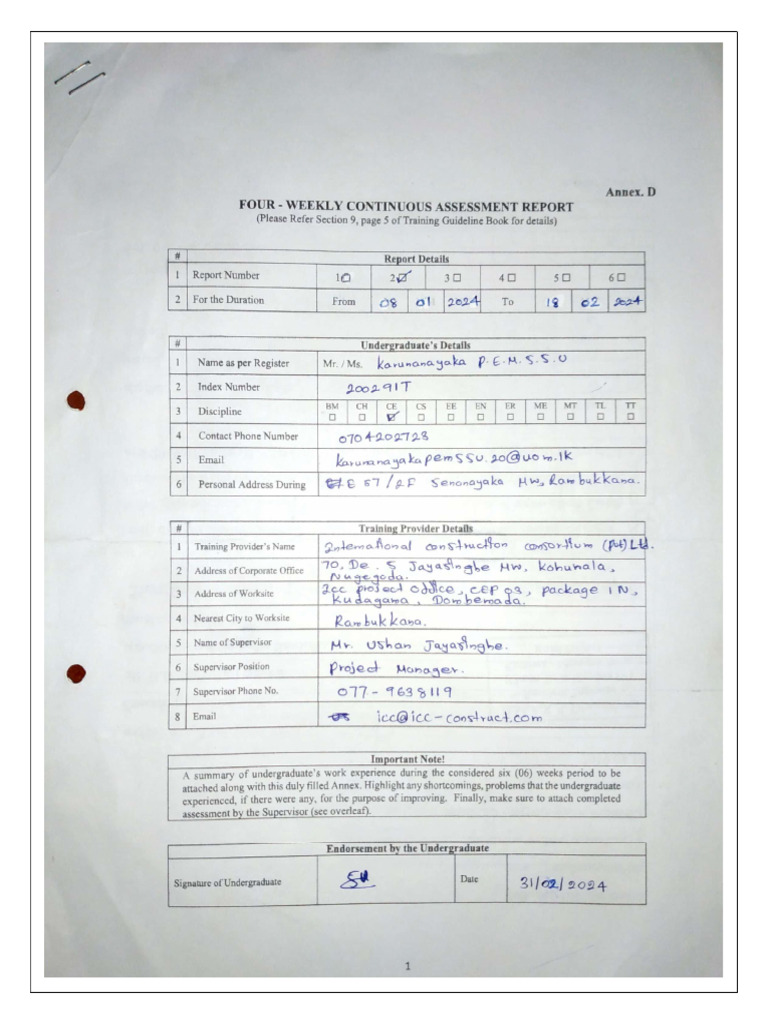 Annex. D
FOUR - WEEKLY CONTINUOUS ASSESSMENT REPORT
(Please Refer Section 9, page 5 of Training Guideline Book for details)
# Report Details
1 Report Number 1 ☐ 2 ☑ 3 ☐ 4 ☐ 5 ☐ 6 ☐
2 For the Duration From 08 01 2024 To 18 02 2024
# Undergraduate's Details
1 Name as per Register Mr. / Ms. Karunanayaka P.E.M.S.S.U
2 Index Number 200291T
BM CH CE CS EE EN ER ME MT TL TT
3 Discipline ☐ ☐ ☑ ☐ ☐ ☐ ☐ ☐ ☐ ☐ ☐
4 Contact Phone Number 0704202728
5 Email karunanayakapemssu.20@uom.lk
6 Personal Address During E 57/2F Senanayaka Mw, Rambukkana.
# Training Provider Details
1 Training Provider's Name International construction consortium (pvt) Ltd.
2 Address of Corporate Office 70, De. S Jayasinghe Mw, Kohuwala,
Nugegoda.
3 Address of Worksite Icc project office, CEP 03, package 1 N,
Kudagama, Dombemada.
4 Nearest City to Worksite Rambukkana.
5 Name of Supervisor Mr. Ushan Jayasinghe.
6 Supervisor Position Project Manager.
7 Supervisor Phone No. 077-9638119
8 Email icc@icc-construct.com
Important Note!
A summary of undergraduate's work experience during the considered six (06) weeks period to be
attached along with this duly filled Annex. Highlight any shortcomings, problems that the undergraduate
experienced, if there were any, for the purpose of improving. Finally, make sure to attach completed
assessment by the Supervisor (see overleaf).
Endorsement by the Undergraduate
Signature of Undergraduate Date 31/02/2024
1